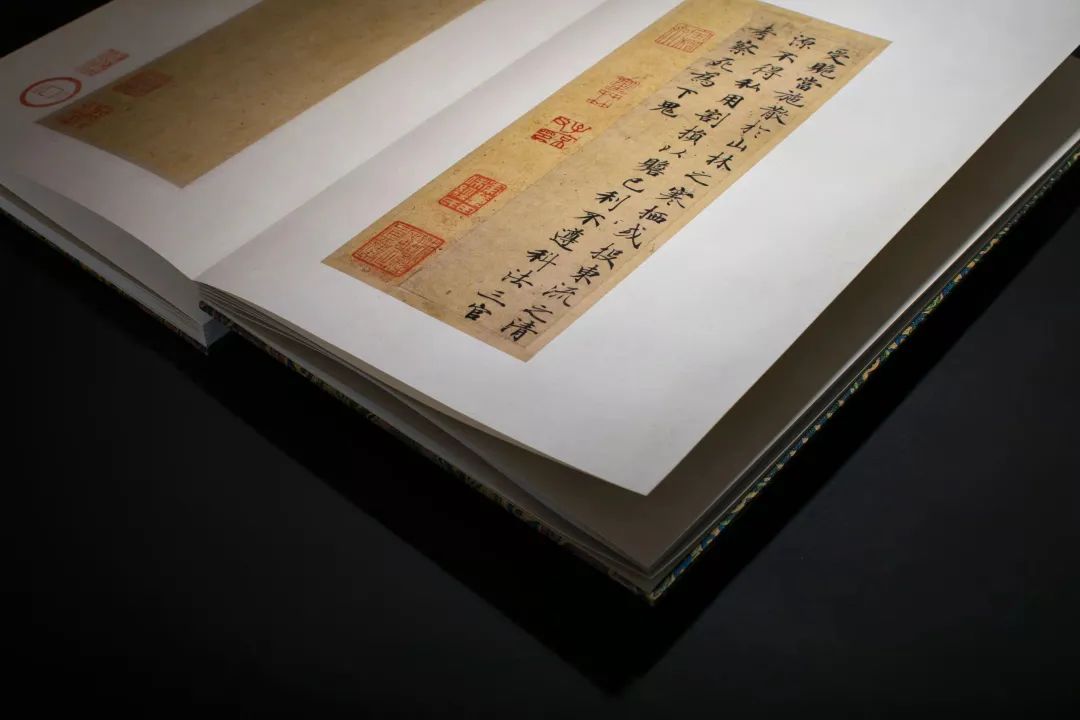 受脆當施散於山林之寒栖或投東流之清
源不得私用割損以贍己利不遵科法三官
考察死為下鬼